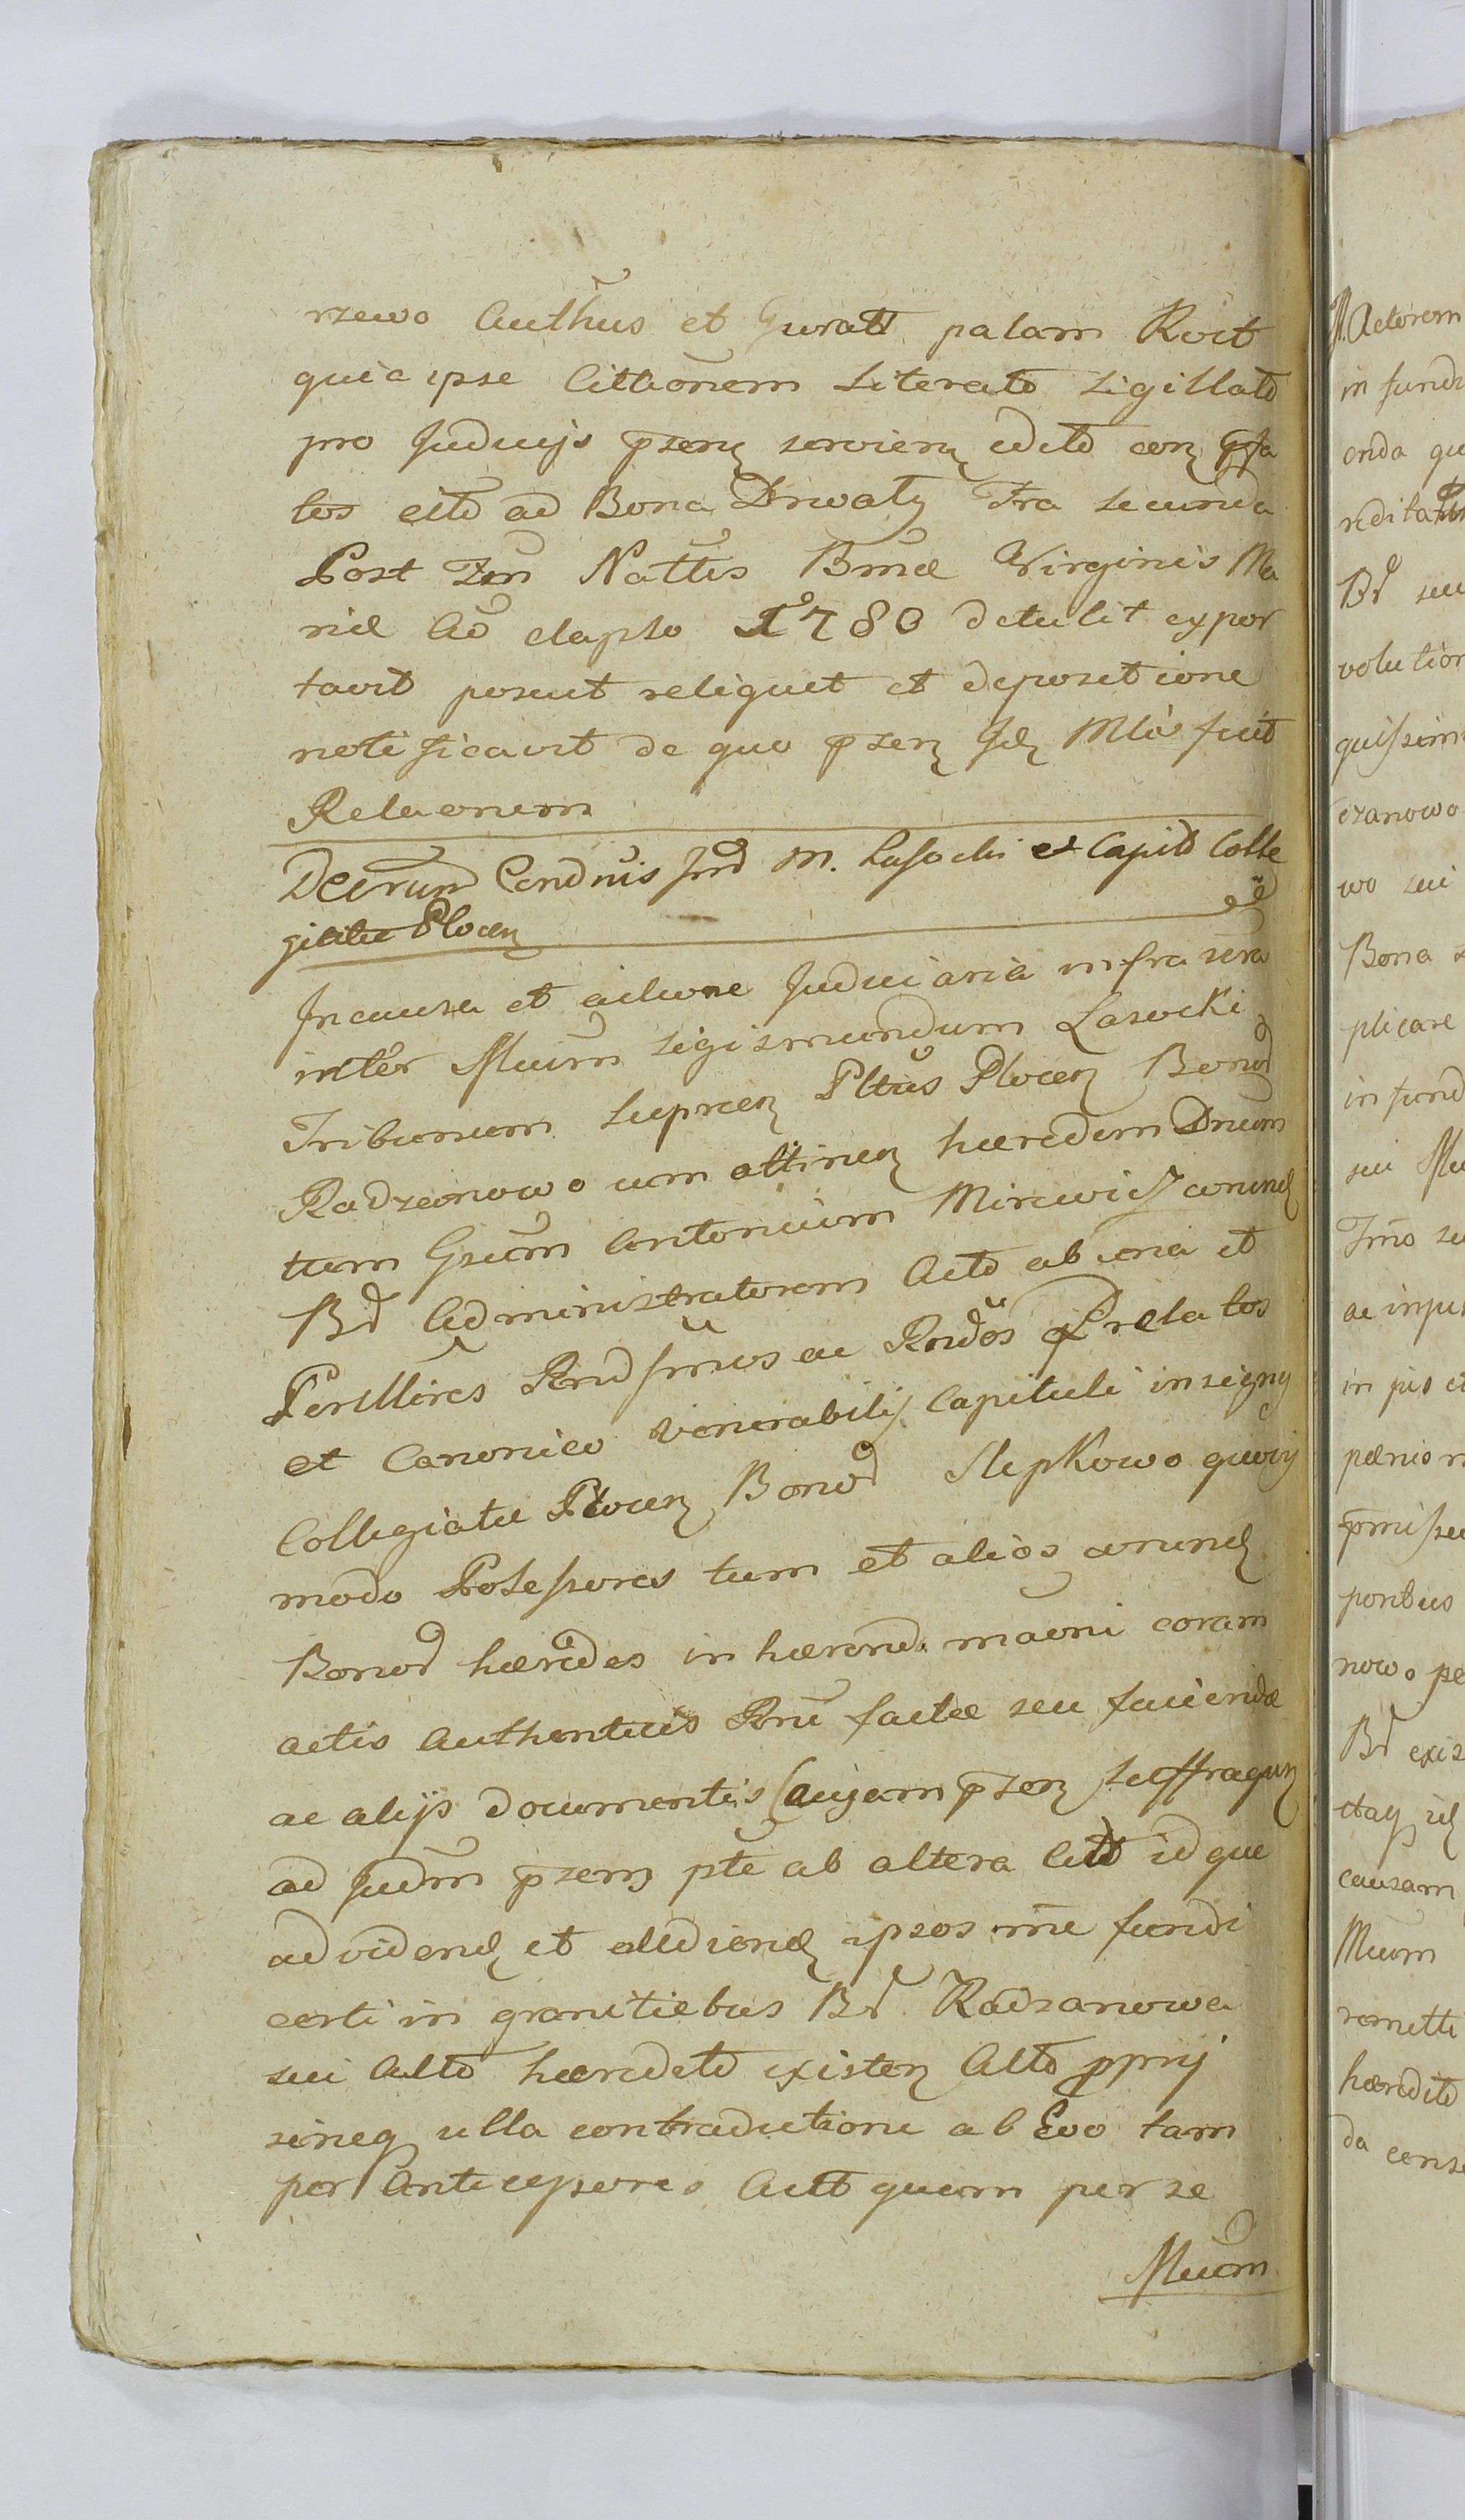 rzewo Authus et Gurati palam Rvit
quia ipse Cittionem Literato Sigillato
pro Judicijs pszenz servienz edito eonz
tos cito ad Bona Drwały Fra Secunda
Post Fm Nattis Bmæ Virginis Ma
riæ Ao elapso 1780 detulit expor
tavit posuit reliquit et depositione
notificavit de quo pszenz Jdz Mlis fecit
Relaonem
Decrum Condnis Jnd M. Lasocki et Capit Colle
giatæ Plocenz
In causa et actione Judiciaria infra scra
inter Mcum Sigismundum Lasocki
Tribunum Supræn Pltus Plocenz Bonod
Radzeonowo cum attinenz hæredem Dnum
tum Gsum Antonium Mirewicz eorund
Bd Administratorem Acto ab una et
Perillres Rnd smos ac Rndos Prelatos
et Canonico Venerabilis Capituli insigny
Collegiatæ Plocenz Bonod Slepkowo quovij
modo Possessores tum et alios eorund
Bonod hæredes in hærend. maoni coram
actis Authenticis Rni factæ seu faciendæ
ac alijs documentis (cujam pszenz suffragunz
ad Judm pszens pte ab altera Citt id que
ad vidend et audiend ipsos me fundi
certi in granitiebus Bd Radzanowa
sui Alto hæredeto existenz Alto pprij
sineq ulla contradictione ab Evo tam
per Antecessores Autt quam per se
Mcum
Actorem
in fund
enda qu
Bd seu
volution
quissim
czanowo
wo sui
Bona
plicare
in fund
Imo se
ac inpu
in pis et
pænion
pmisse
ponbus
nowo pe
Bd exis
causam
Mcum
remitti
hæredito
da conse